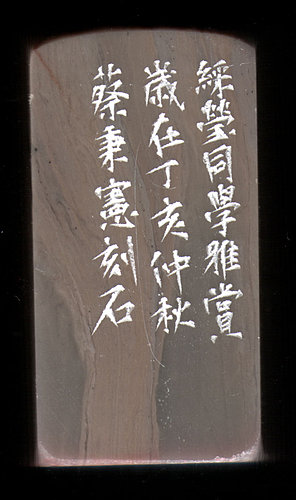 綵瑩同學雅賞
歲在丁亥仲秋
蔡秉憲刻石